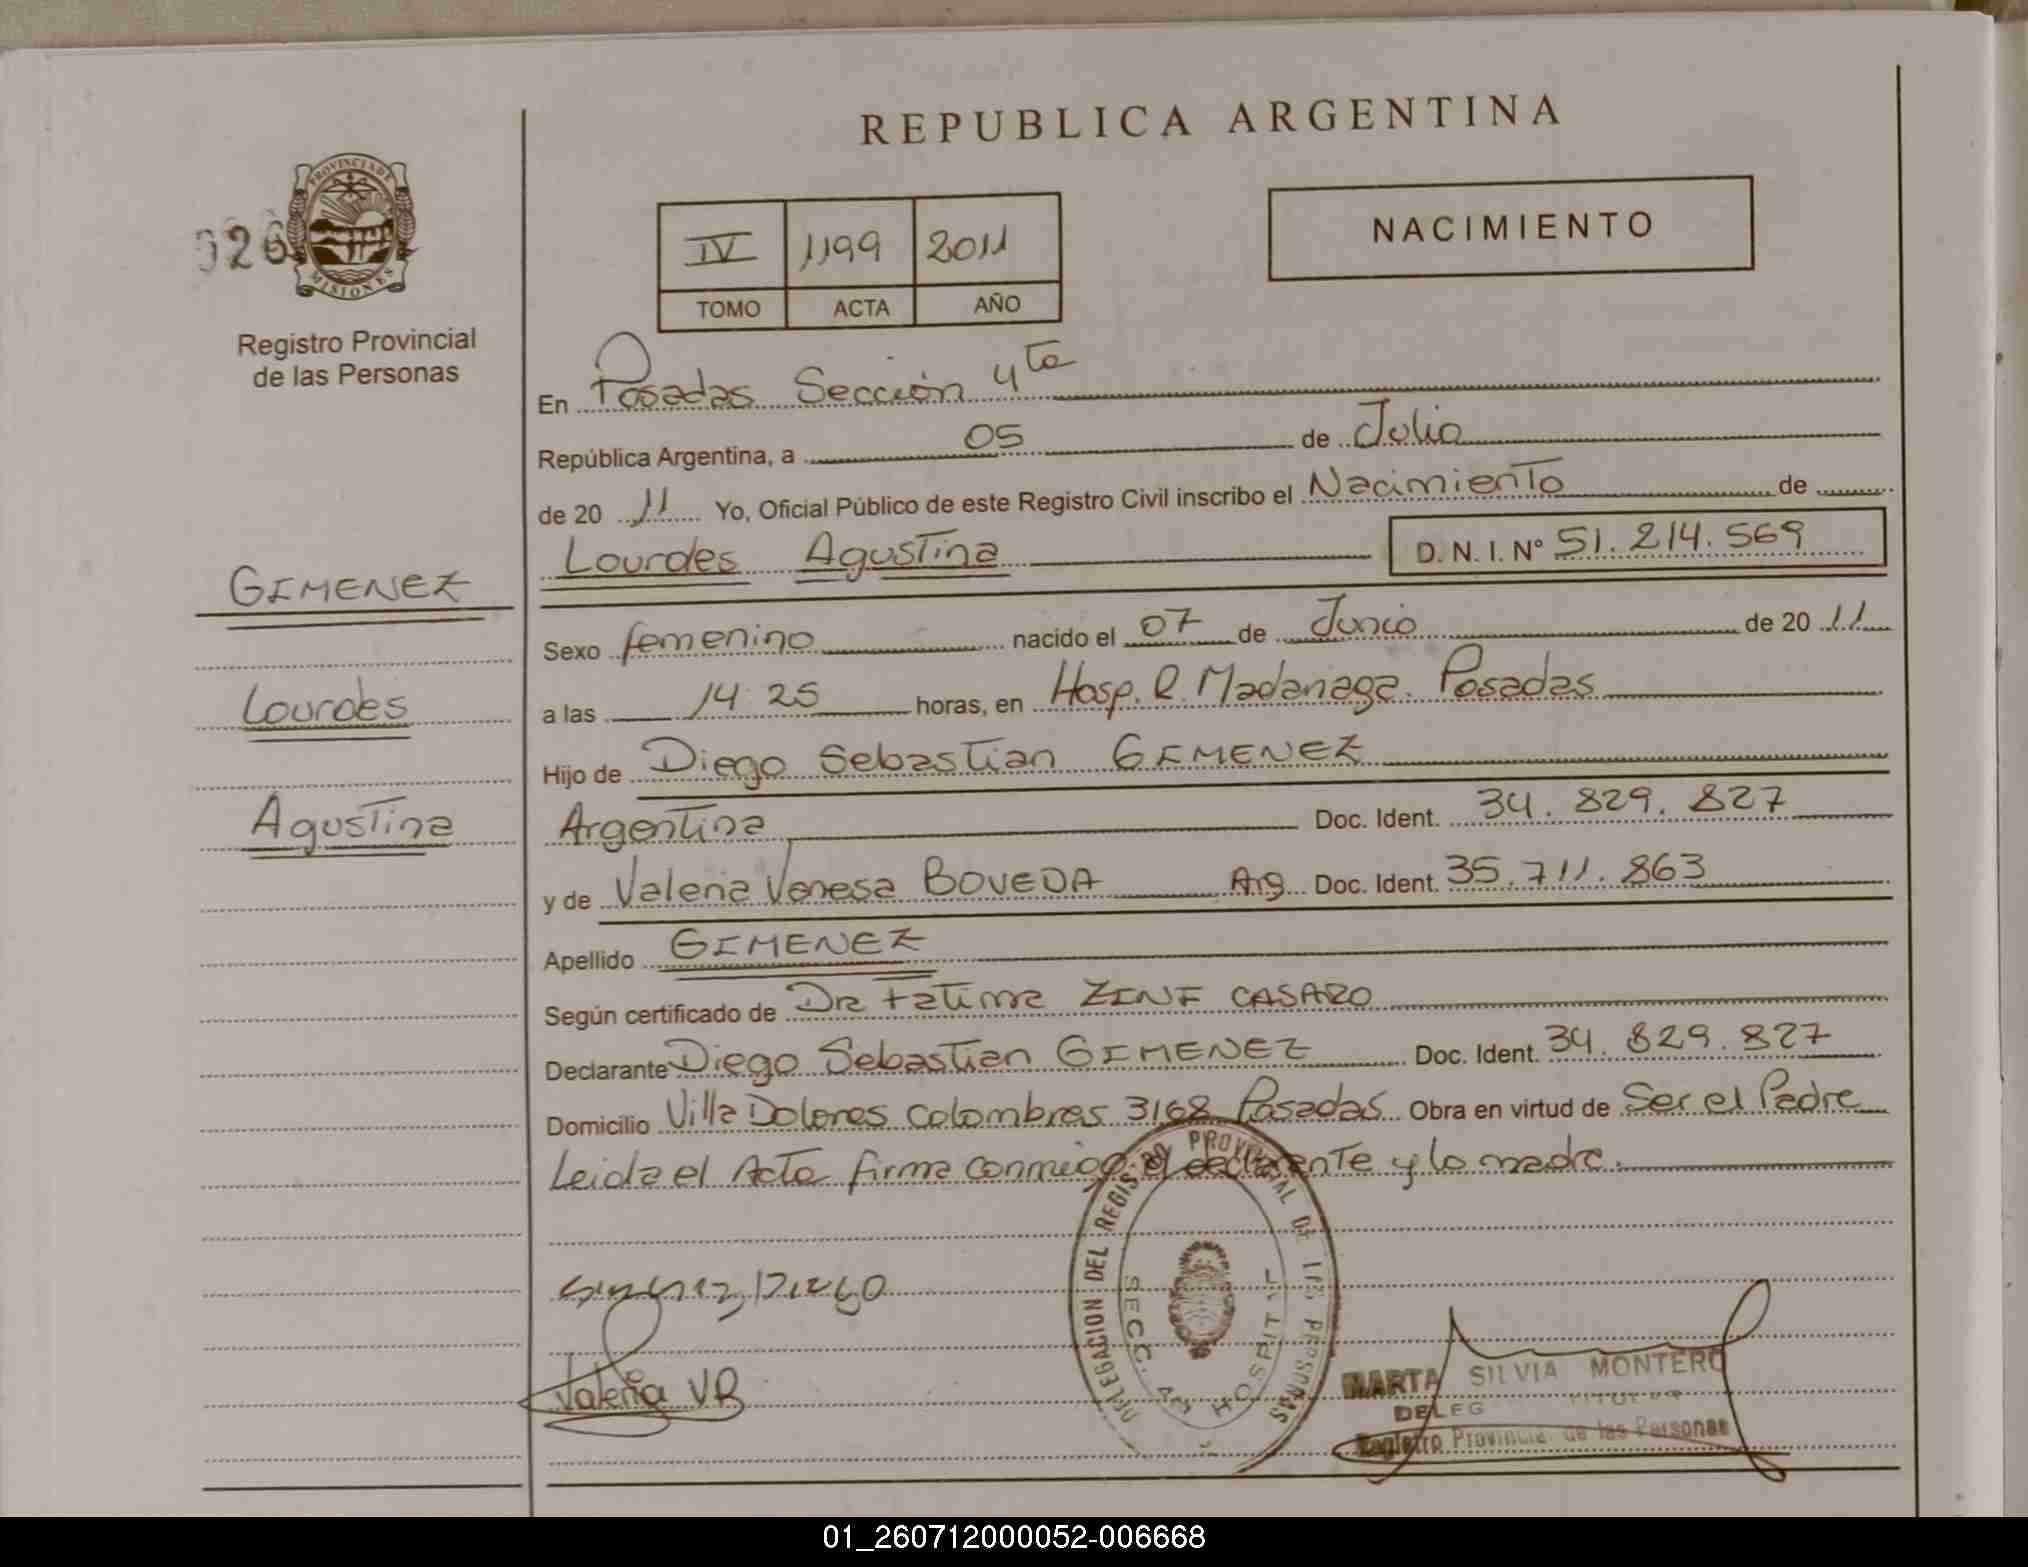 REPUBLICA ARGENTINA
PROVINCIA DE MISIONES
026
Registro Provincial
de las Personas
IV 1199 2011
TOMO ACTA AÑO
NACIMIENTO
En Posadas Sección 4ta
República Argentina, a 05 de Julio
de 2011 Yo, Oficial Público de este Registro Civil inscribo el Nacimiento de
Lourdes Agustina D. N. I. Nº 51.214.569
GIMENEZ
Lourdes
Agustina
Sexo femenino nacido el 07 de Junio de 2011
a las 14 25 horas, en Hosp. R. Madariaga. Posadas
Hijo de Diego Sebastian GIMENEZ
Argentina Doc. Ident. 34.829.827
y de Valeria Vanesa BOVEDA Arg Doc. Ident. 35.711.863
Apellido GIMENEZ
Según certificado de Dra Fatima CASARO
Declarante Diego Sebastian GIMENEZ Doc. Ident. 34.829.827
Domicilio Villa Dolores Colombres 3168 Posadas Obra en virtud de Ser el Padre
Leida el Acta firma conmigo el declarante y la madre.
DELEGACION DEL REGISTRO PROVINCIAL DE LAS PERSONAS
SECC. HOSPITAL
Valeria V.B
MARTA SILVIA MONTERO
DELEG TITULAR
Registro Provincial de las Personas
01_260712000052-006668